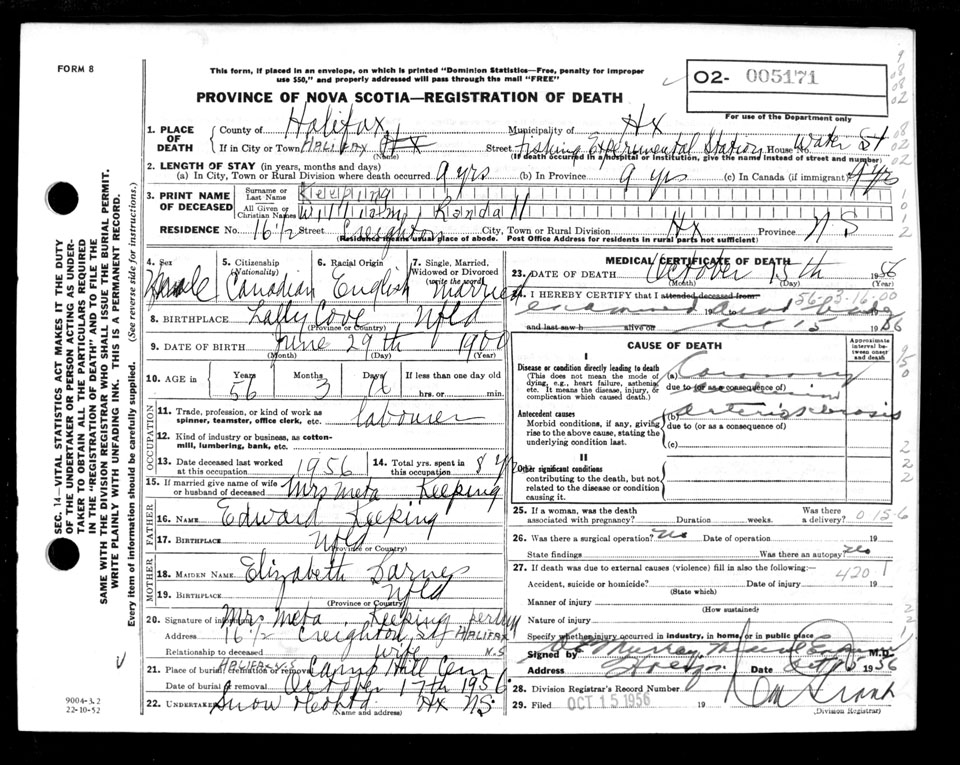 FORM 8
This form, if placed in an envelope, on which is printed "Dominion Statistics—Free, penalty for improper
use $50," and properly addressed will pass through the mail "FREE"
O2- 005171
For use of the Department only
PROVINCE OF NOVA SCOTIA—REGISTRATION OF DEATH
1. PLACE OF DEATH
County of Halifax Municipality of Hx
If in City or Town HALIFAX Hx (Name) Street Fishing Experimental Station House No. Water St
(If death occurred in a hospital or institution, give the name instead of street and number)
2. LENGTH OF STAY (in years, months and days)
(a) In City, Town or Rural Division where death occurred 9 yrs (b) In Province 9 yrs (c) In Canada (if immigrant) 9 yrs
3. PRINT NAME OF DECEASED
Surname or Last Name Keeping
All Given or Christian Names William Randall
RESIDENCE No. 16 1/2 Street Creighton City, Town or Rural Division Hx Province N S
(Residence means usual place of abode. Post Office Address for residents in rural parts not sufficient)
4. Sex Male
5. Citizenship (Nationality) Canadian
6. Racial Origin English
7. Single, Married, Widowed or Divorced (write the word) Married
8. BIRTHPLACE Lally Cove Nfld
(Province or Country)
9. DATE OF BIRTH June 29th 1900
(Month) (Day) (Year)
10. AGE in Years 56 Months 3 Days If less than one day old
hrs. or min.
OCCUPATION
11. Trade, profession, or kind of work as
spinner, teamster, office clerk, etc. labourer
12. Kind of industry or business, as cotton-
mill, lumbering, bank, etc.
13. Date deceased last worked at this occupation 1956 14. Total yrs. spent in this occupation 8 yrs
15. If married give name of wife
or husband of deceased Mrs Meta Keeping
FATHER
16. NAME Edward Keeping
17. BIRTHPLACE Nfld
(Province or Country)
MOTHER
18. MAIDEN NAME Elizabeth Barnes
19. BIRTHPLACE Nfld
(Province or Country)
20. Signature of informant Mrs Meta Keeping
Address 16 1/2 Creighton St HALIFAX
Relationship to deceased wife N.S
21. Place of burial, cremation or removal HALIFAX N.S. Camp Hill Cem
Date of burial or removal October 17th 1956
22. UNDERTAKER Snow Hx NS
(Name and address)
MEDICAL CERTIFICATE OF DEATH
23. DATE OF DEATH October 15th 1956
(Month) (Day) (Year)
56-03-16-00
24. I HEREBY CERTIFY that I attended deceased from:
examined dead body
19
and last saw h alive on Oct 15 1956
CAUSE OF DEATH
Approximate interval between onset and death
I
Disease or condition directly leading to death
(This does not mean the mode of
dying, e.g., heart failure, asthenia,
etc. It means the disease, injury, or
complication which caused death.)
(a) Coronary
due to (or as a consequence of)
Antecedent causes
Morbid conditions, if any, giving
rise to the above cause, stating the
underlying condition last.
(b) arteriosclerosis
due to (or as a consequence of)
(c)
II
Other significant conditions
contributing to the death, but not
related to the disease or condition
causing it.
25. If a woman, was the death
associated with pregnancy? Duration weeks. Was there a delivery?
0 15-6
26. Was there a surgical operation? No Date of operation 19
State findings Was there an autopsy? No
27. If death was due to external causes (violence) fill in also the following:—
420 1
Accident, suicide or homicide? Date of injury 19
(State which)
Manner of injury
(How sustained)
Nature of injury
Specify whether injury occurred in industry, in home, or in public place
Signed by Murray M.D.
Address Date Oct 15 1956
28. Division Registrar's Record Number
29. Filed OCT 15 1956 19 Grant
(Division Registrar)
SEC. 14—VITAL STATISTICS ACT MAKES IT THE DUTY
OF THE UNDERTAKER OR PERSON ACTING AS UNDER-
TAKER TO OBTAIN ALL THE PARTICULARS REQUIRED
IN THE "REGISTRATION OF DEATH" AND TO FILE THE
SAME WITH THE DIVISION REGISTRAR WHO SHALL ISSUE THE BURIAL PERMIT.
WRITE PLAINLY WITH UNFADING INK. THIS IS A PERMANENT RECORD.
Every item of information should be carefully supplied. (See reverse side for instructions.)
9004-3.2
22-10-52